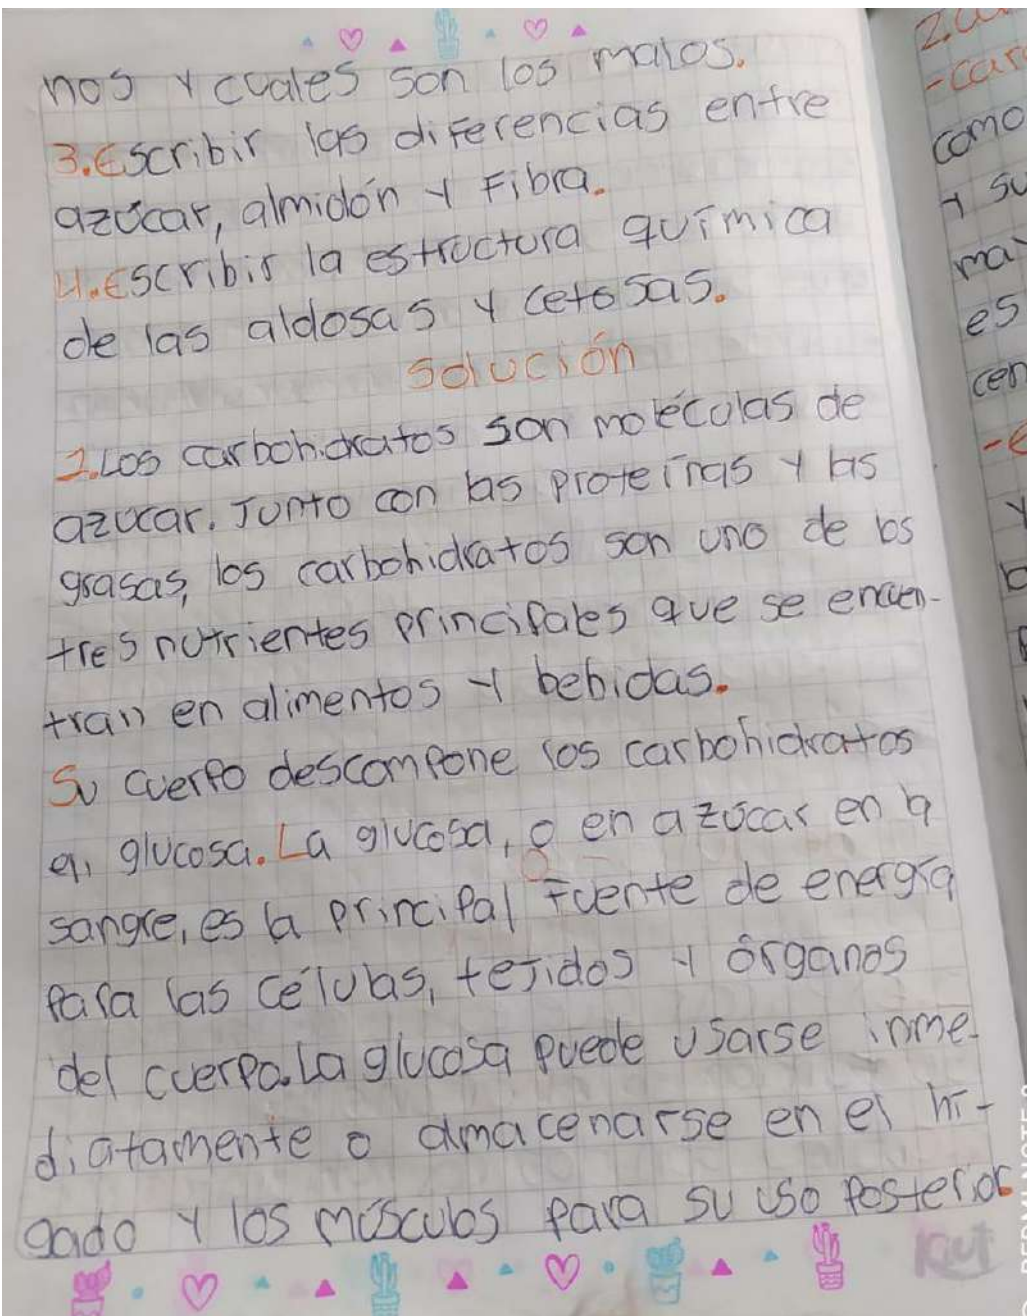 nos y cuales son los malos.
3.Escribir las diferencias entre
azúcar, almidón y Fibra.
4.Escribir la estructura química
de las aldosas y cetosas.
Solución
1.Los carbohidratos son moléculas de
azucar. Junto con las proteínas y las
grasas, los carbohidratos son uno de los
tres nutrientes principales que se encuen-
tran en alimentos y bebidas.
Su cuerpo descompone los carbohidratos
en glucosa. La glucosa, o en azúcar en la
sangre, es la principal fuente de energía
para las células, tejidos y órganos
del cuerpo. La glucosa puede usarse inme-
diatamente o almacenarse en el hí-
gado y los músculos para su uso posterior.
Kut
2.
-car
como
y su
may
es
cen